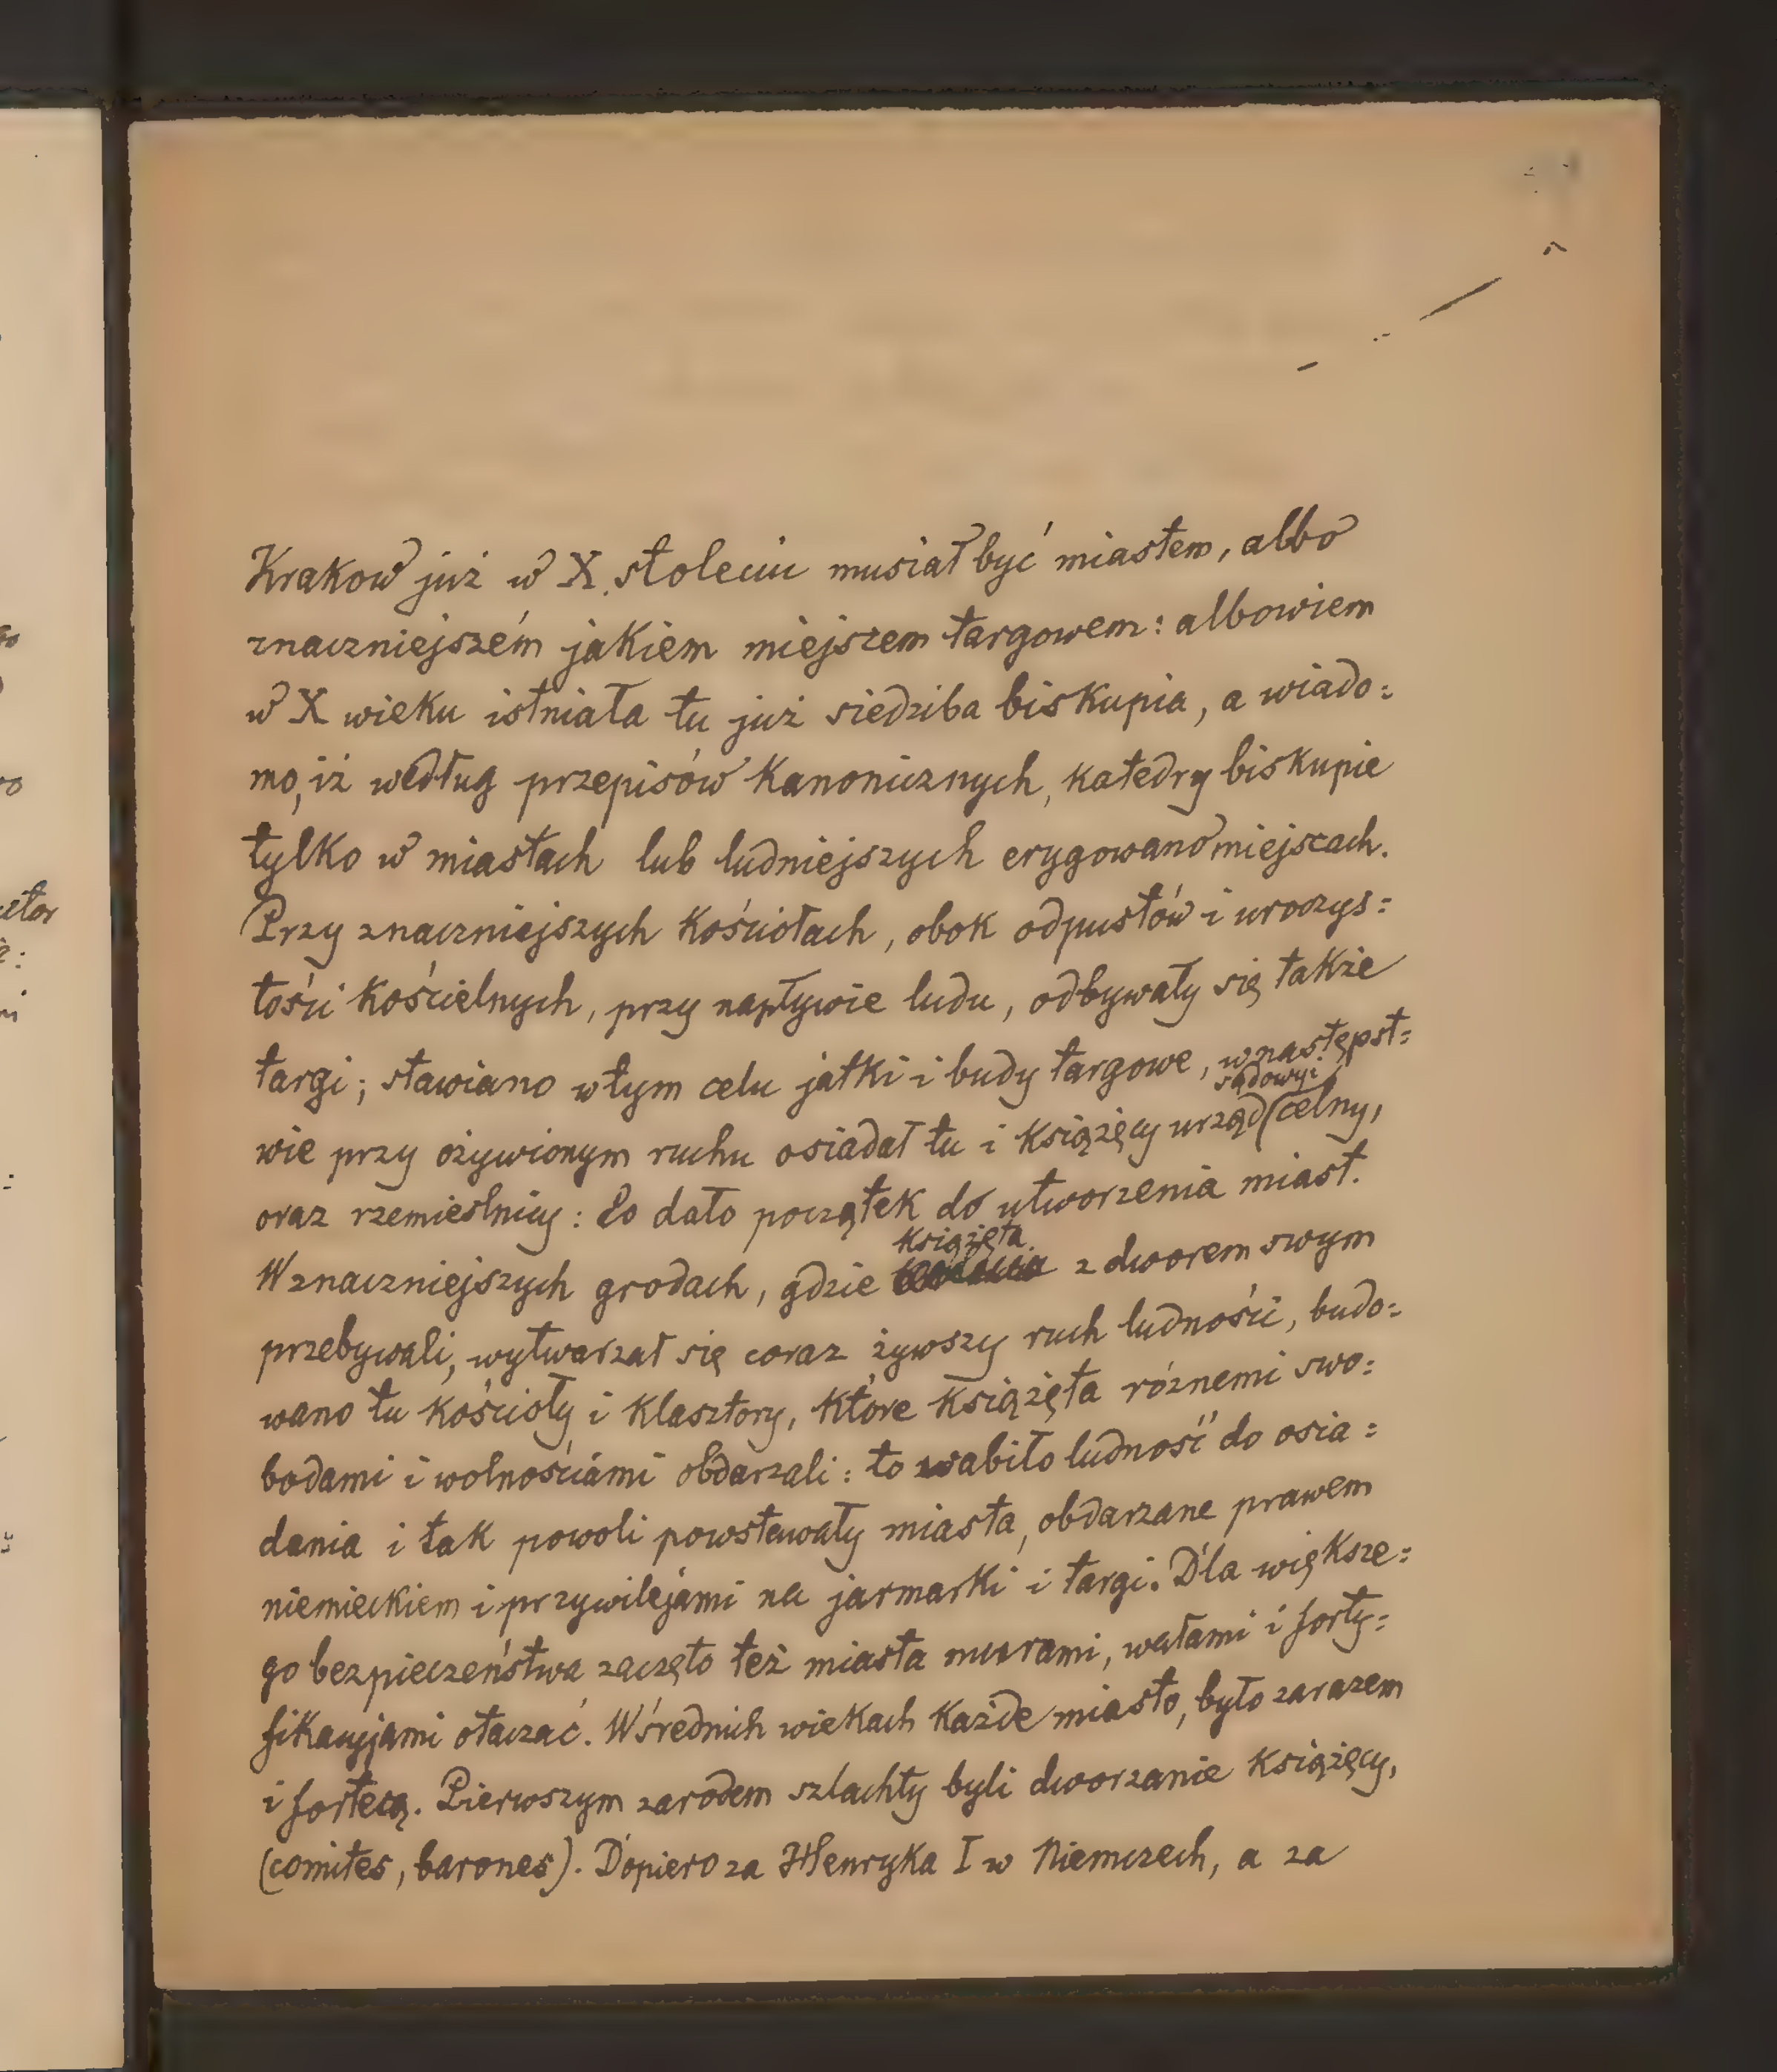 Krakow już w X stoleciu musiał być miastem, albo
znaczniejszém jakiem miejscem targowem: albowiem
w X wieku istniała tu już siedziba biskupia, a wiado:
mo, iż według przepisów kanonicznych, katedry biskupie
tylko w miastach lub ludniejszych erygowano miejscach.
Przy znaczniejszych kościołach, obok odpustów i uroczys:
tości kościelnych, przy napływie ludu, odbywały się także
targi; stawiano w tym celu jatki i budy targowe, w następst:
sądowy i
wie przy ożywionym ruchu osiadał tu i książęcy urząd celny,
oraz rzemieślnicy: Co dało początek do utworzenia miast.
książęta
W znaczniejszych grodach, gdzie z dworem swym
przebywali, wytwarzał się coraz żywszy ruch ludności, budo:
wano tu kościoły i klasztory, które książęta różnemi swo:
bodami i wolnościami obdarzali: to wabiło ludność do osia:
dania i tak powoli powstawały miasta, obdarzane prawem
niemieckiem i przywilejami na jarmarki i targi. Dla większe:
go bezpieczeństwa zaczęto też miasta murami, wałami i forty:
fikacyjami otaczać. W średnich wiekach każde miasto, było zarazem
i fortecą. Pierwszym zarodem szlachty byli dworzanie książęcy,
(comites, barones). Dopiero za Henryka I w Niemczech, a za